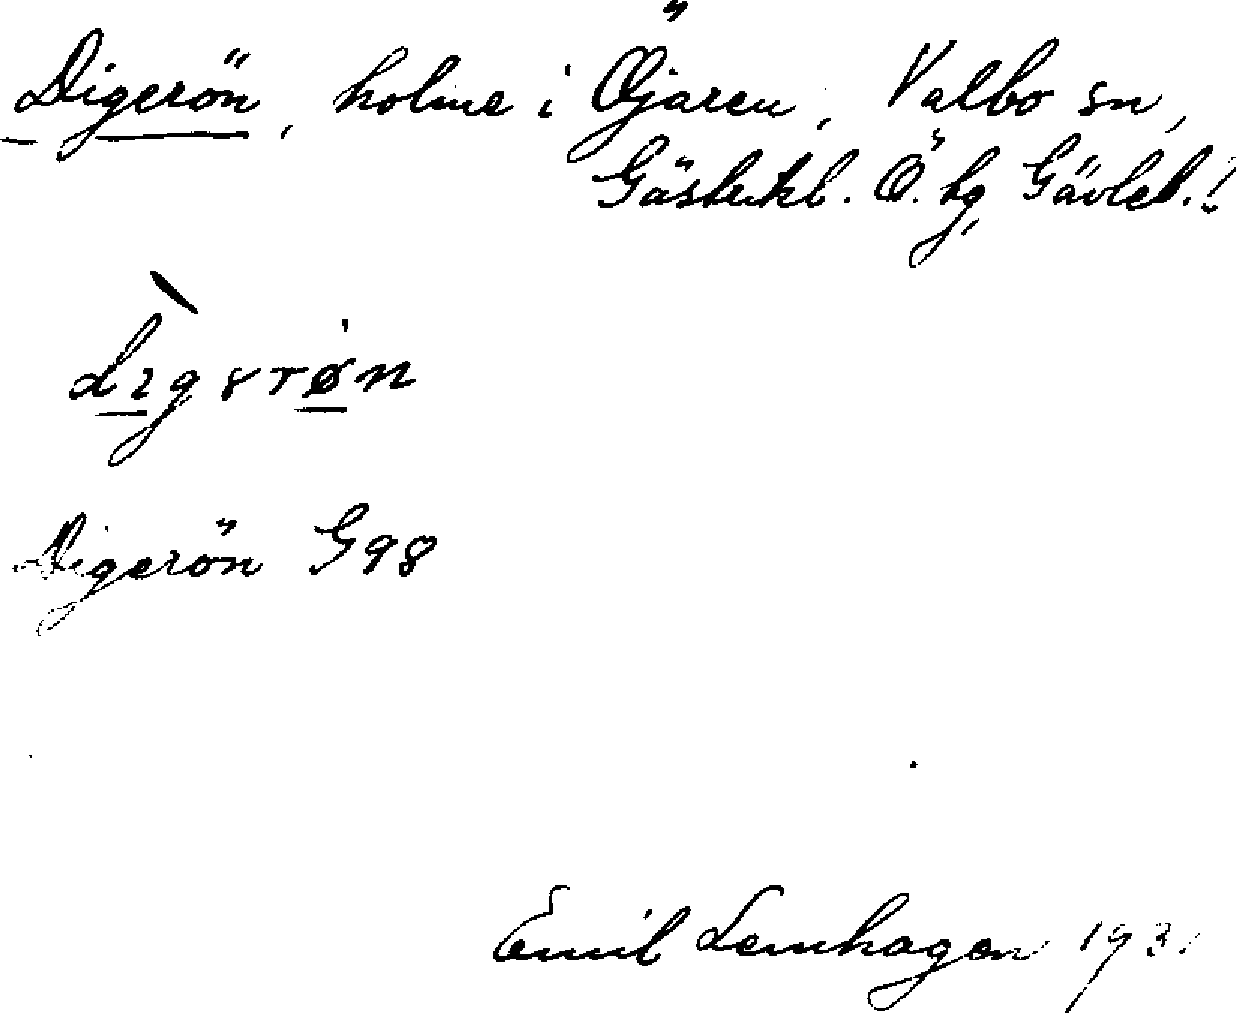 Digerön, holme i Öjaren, Valbo sn,
Gästrikl. Ö. tg, Gävlel.!
dı̀gɤrøn
Digerön G98
Emil Lemhagen 193